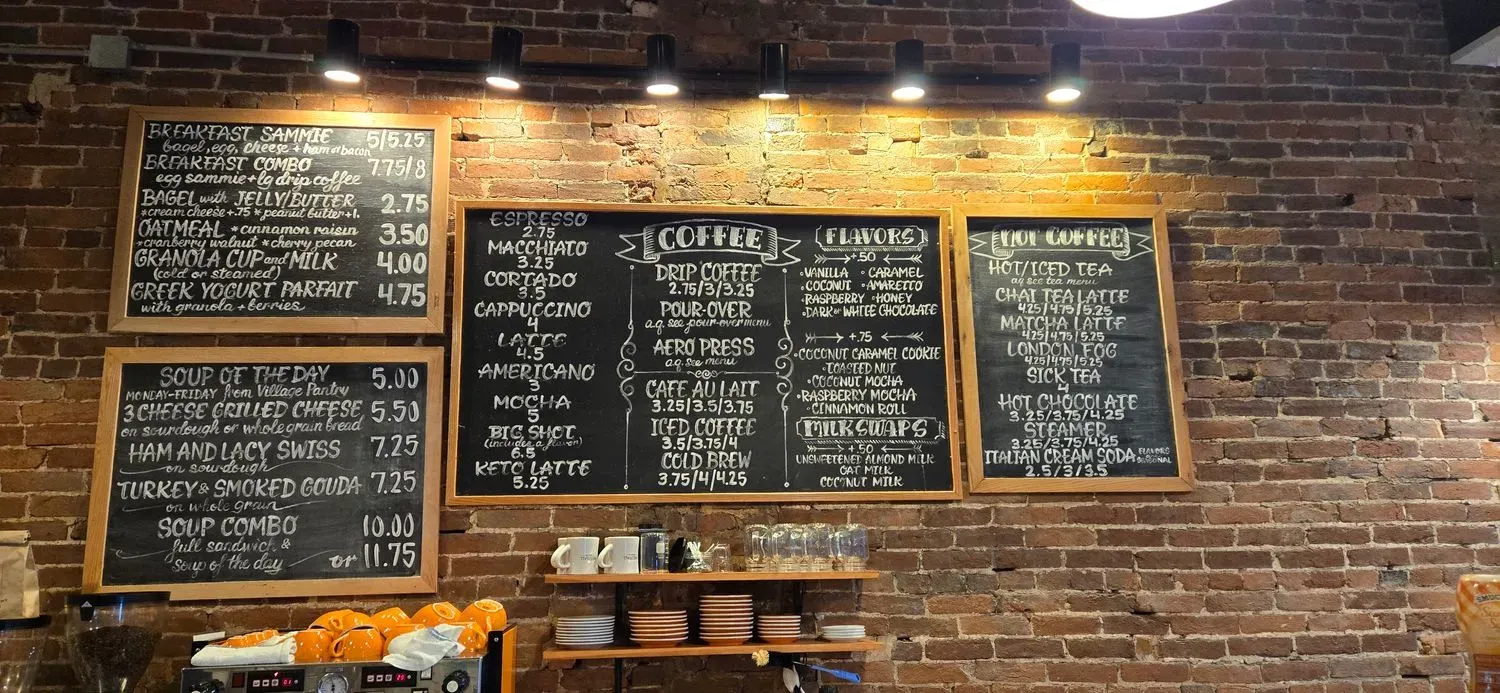 BREAKFAST SAMMIE 5/5.25
bagel, egg, cheese + ham or bacon
BREAKFAST COMBO 7.75/8
egg sammie + lg drip coffee
BAGEL with JELLY/BUTTER 2.75
*cream cheese +.75 *peanut butter +1.
OATMEAL *cinnamon raisin 3.50
*cranberry walnut *cherry pecan
GRANOLA CUP and MILK 4.00
(cold or steamed)
GREEK YOGURT PARFAIT 4.75
with granola + berries
SOUP OF THE DAY 5.00
MONDAY-FRIDAY from Village Pantry
3 CHEESE GRILLED CHEESE 5.50
on sourdough or whole grain bread
HAM AND LACY SWISS 7.25
on sourdough
TURKEY & SMOKED GOUDA 7.25
on whole grain
SOUP COMBO 10.00
full sandwich &
soup of the day or 11.75
ESPRESSO
2.75
MACCHIATO
3.25
CORTADO
3.5
CAPPUCCINO
4
LATTE
4.5
AMERICANO
3
MOCHA
5
BIG SHOT
(includes a flavor)
6.5
KETO LATTE
5.25
COFFEE
DRIP COFFEE
2.75/3/3.25
POUR-OVER
a.q. see pour-over menu
AERO PRESS
a.q. see menu
CAFE AU LAIT
3.25/3.5/3.75
ICED COFFEE
3.5/3.75/4
COLD BREW
3.75/4/4.25
FLAVORS
+.50
•VANILLA •CARAMEL
•COCONUT •AMARETTO
•RASPBERRY •HONEY
•DARK or WHITE CHOCOLATE
+.75
•COCONUT CARAMEL COOKIE
•TOASTED NUT
•COCONUT MOCHA
•RASPBERRY MOCHA
•CINNAMON ROLL
MILK SWAPS
+.50
UNSWEETENED ALMOND MILK
OAT MILK
COCONUT MILK
NOT COFFEE
HOT/ICED TEA
aq see tea menu
CHAI TEA LATTE
4.25/4.75/5.25
MATCHA LATTE
4.25/4.75/5.25
LONDON FOG
4.25/4.75/5.25
SICK TEA
4
HOT CHOCOLATE
3.25/3.75/4.25
STEAMER
3.25/3.75/4.25
ITALIAN CREAM SODA FLAVORS
SEASONAL
2.5/3/3.5